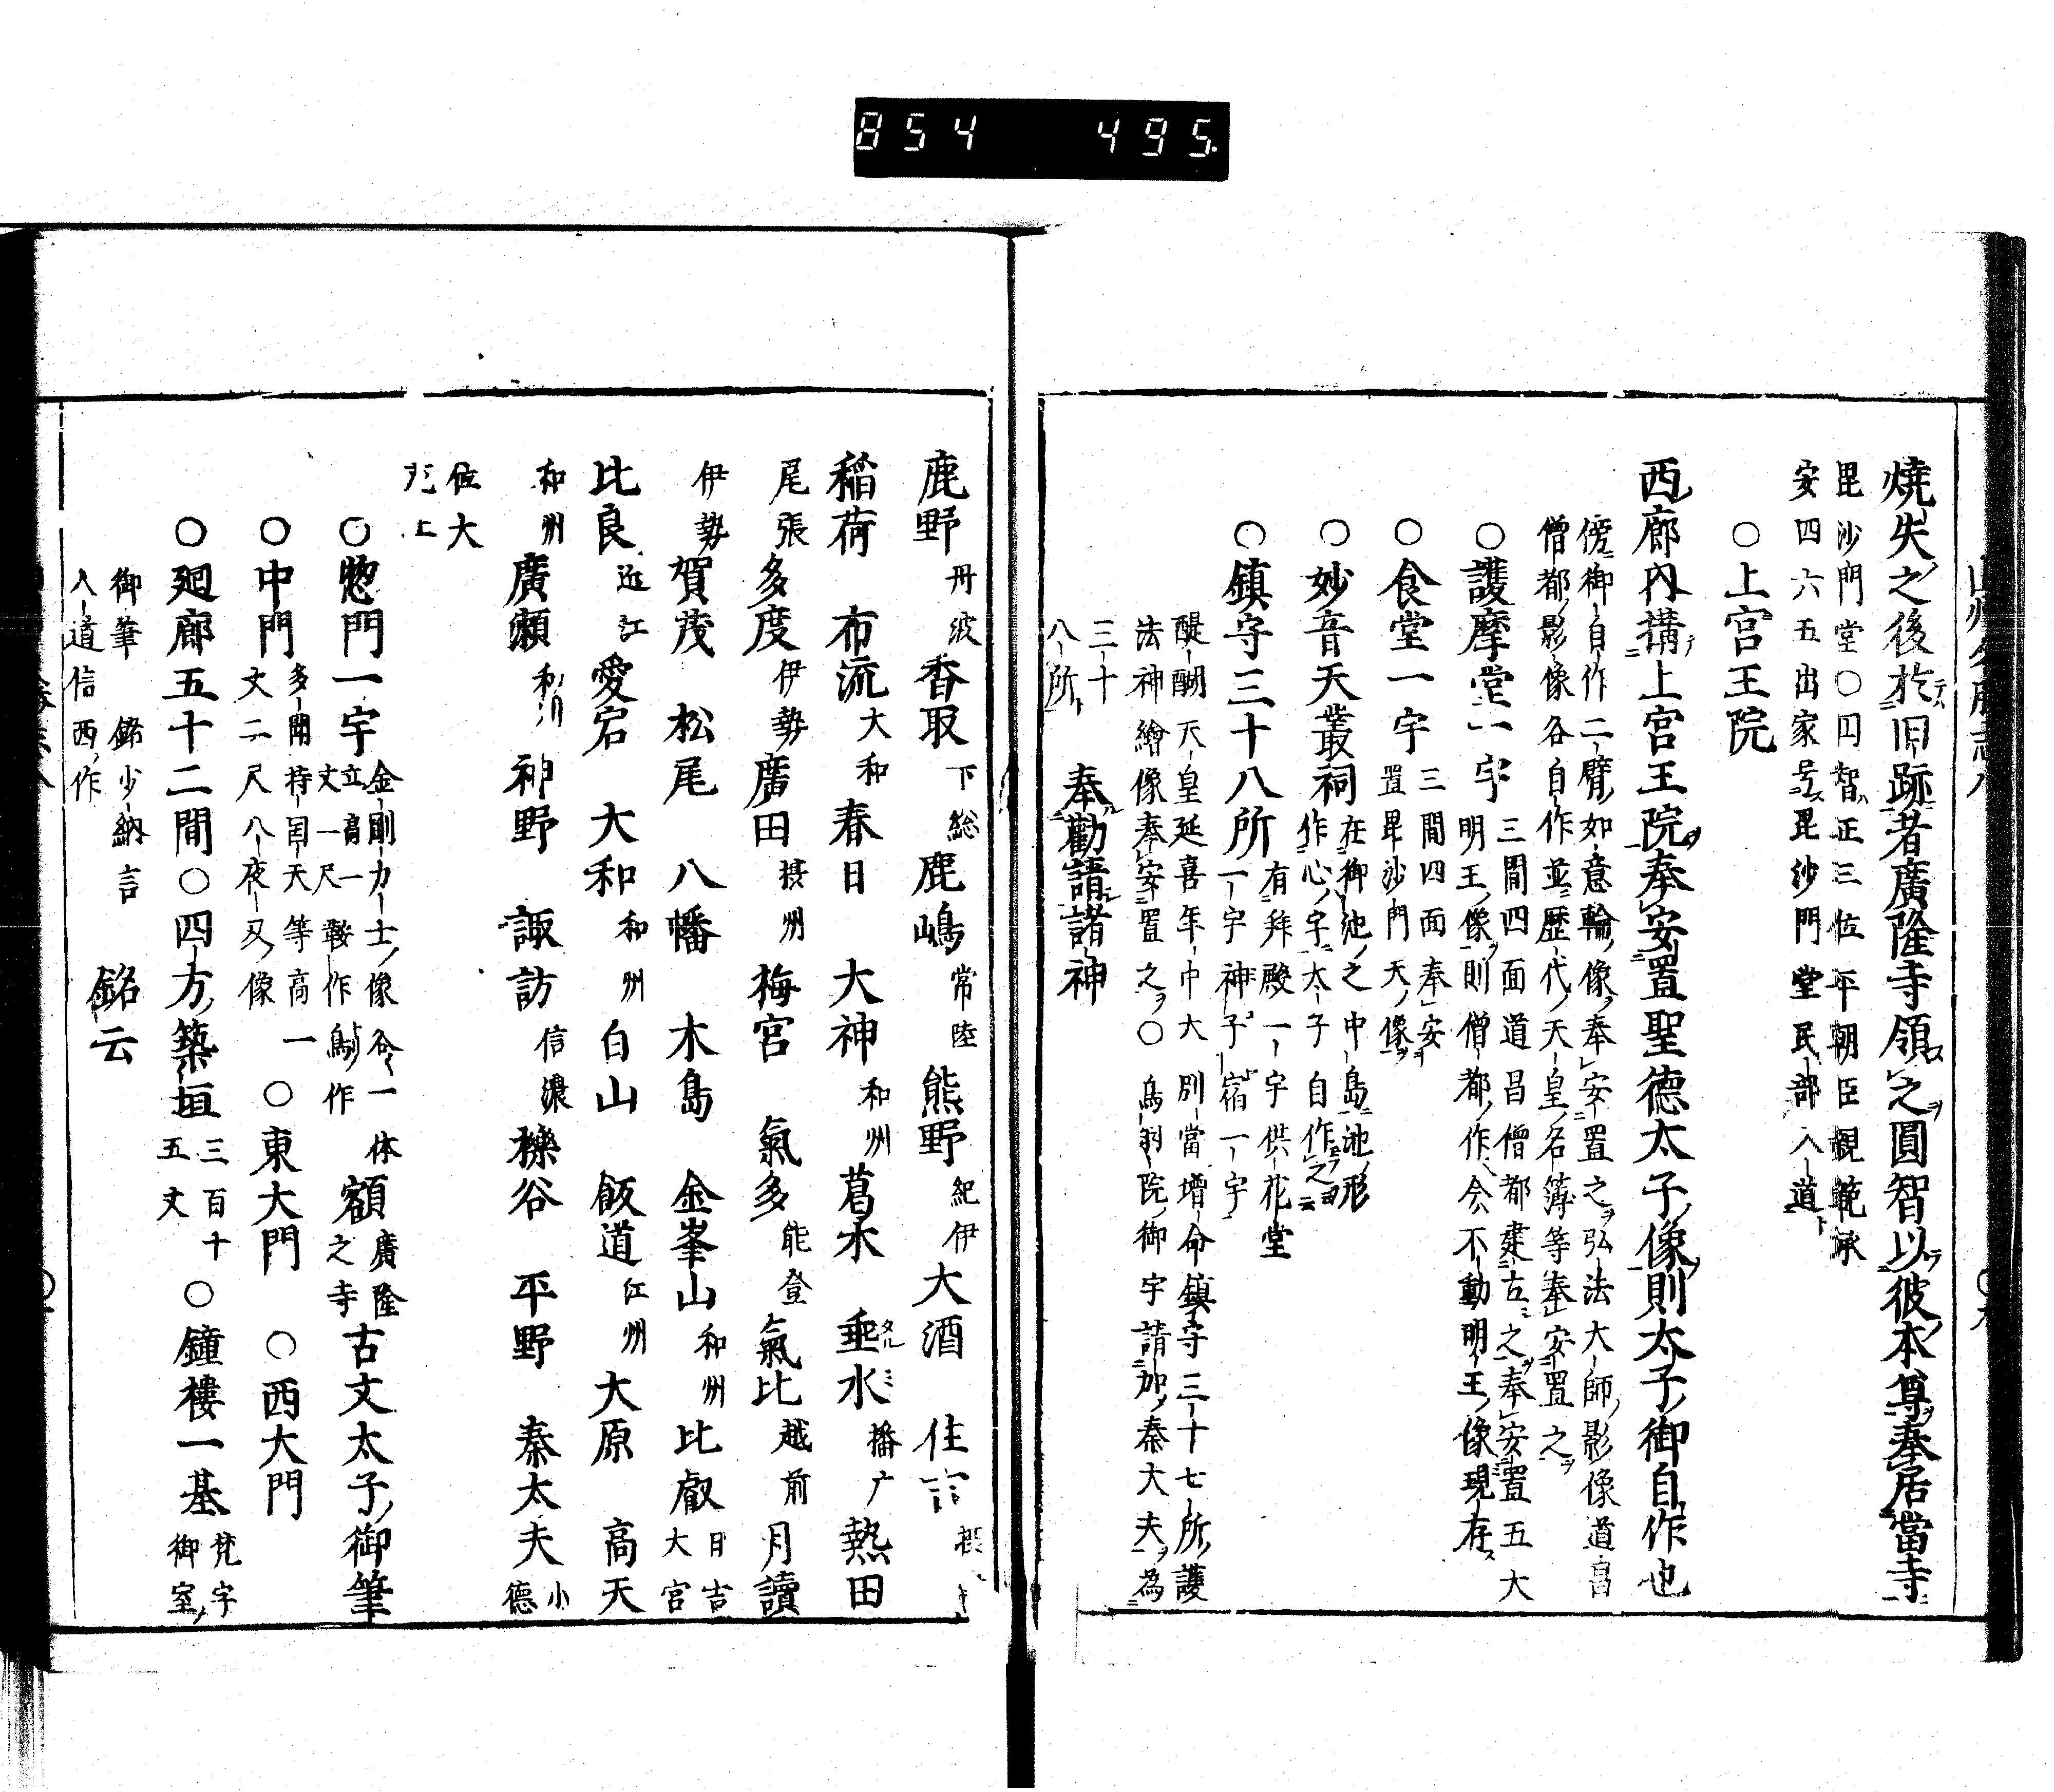 854 495.
燒失之後於旧跡者廣隆寺領之圓智以彼本尊奉居當寺
毘沙門堂〇円智正三位平朝臣親範承
安四六五出家号毘沙門堂民部入道
〇上宮王院
西廊内講上宮王院奉安置聖德太子像則太子御自作也
傍御自作二臂如意輪像奉安置之弘法大師影像道昌
僧都影像各自作並歴代天皇名簿等奉安置之
〇護摩堂一宇
三間四面道昌僧都建古之奉安置五大
明王像則僧都作今不動明王像現存
〇食堂一宇
三間四面奉安
置毘沙門天像
〇妙音天叢祠
在御池之中島池形
作心字太子自作之
〇鎮守三十八所
有拜殿一宇供花堂
一宇神子宿一宇
醍醐天皇延喜年中大別當增命鎮守三十七所護
法神繪像奉安置之〇鳥羽院御宇請加秦大夫為
三十
八所
奉勸請諸神
鹿野 丹波 香取 下総 鹿嶋 常陸 熊野 紀伊 大酒 住吉
稲荷 布流 大和 春日 大神 和州 葛木 垂水 播广 熱田
尾張 多度 伊勢 廣田 摂州 梅宮 氣多 能登 氣比 越前 月讀
伊勢 賀茂 松尾 八幡 木島 金峯山 和州 比叡 日吉大宮
比良 近江 愛宕 大和 和州 白山 飯道 江州 大原 高天
和州 廣瀬 和州 神野 諏訪 信濃 櫟谷 平野 秦太夫 小德
位大
已上
〇惣門一宇
金剛力士像各一体
立高一丈一尺 鞍作鳥作
額 廣隆之寺 古文太子御筆
〇中門
多聞持国天等高一
丈二尺八夜叉像
〇東大門 〇西大門
〇廻廊五十二間〇四方築垣 三百十五丈 〇鐘樓一基 梵字御室
御筆 銘少納言
入道信西作
銘云